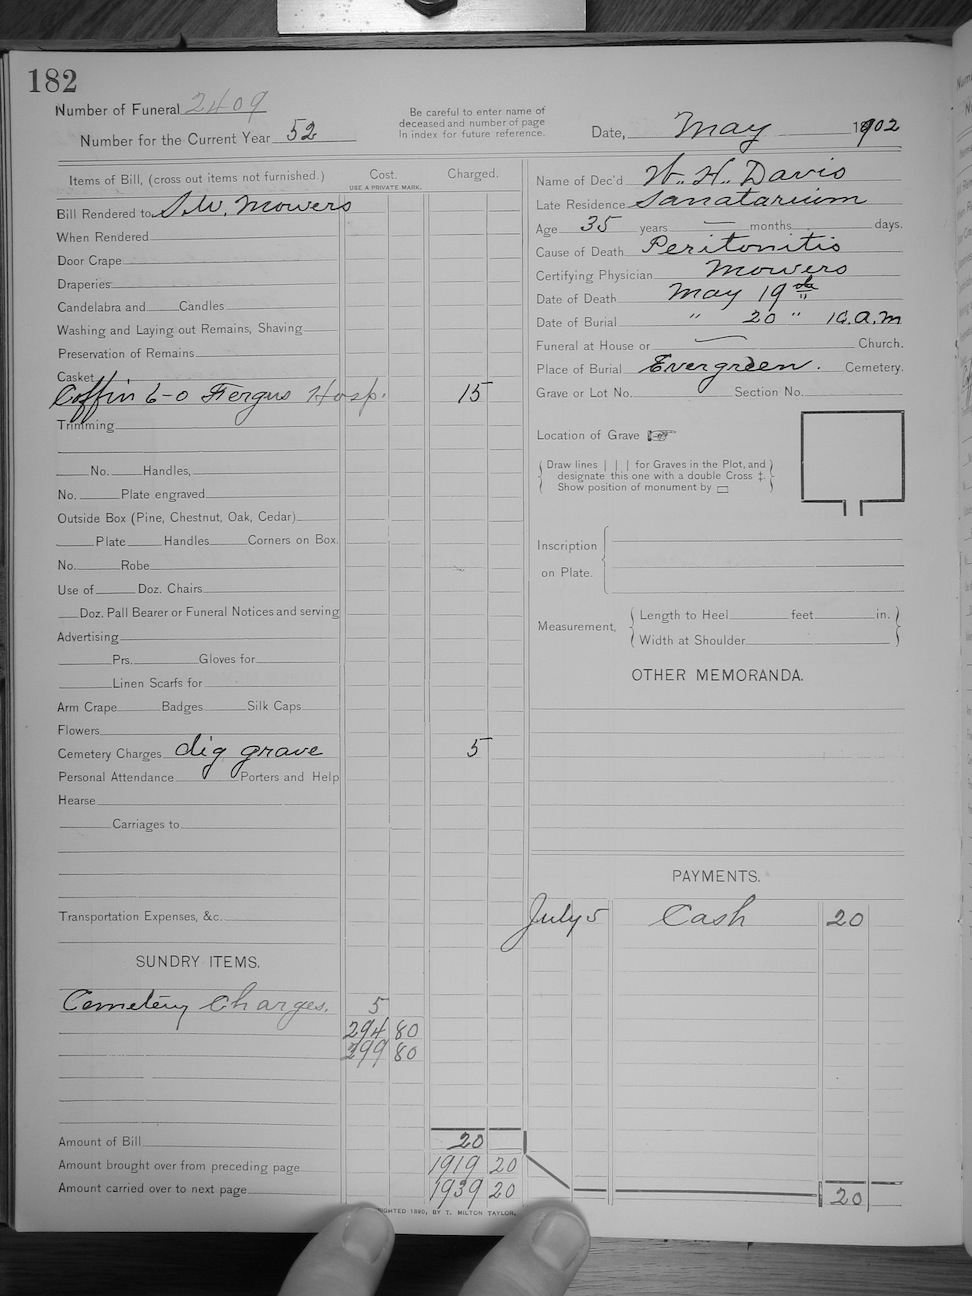 182
Number of Funeral 2409
Number for the Current Year 52
Be careful to enter name of
deceased and number of page
In index for future reference.
Date, May 1902
Items of Bill, (cross out items not furnished.)
Cost.
USE A PRIVATE MARK.
Charged.
Bill Rendered to S.W. Mowers
When Rendered
Door Crape
Draperies
Candelabra and Candles
Washing and Laying out Remains, Shaving
Preservation of Remains
Casket
Coffin 6-0 Fergus Hosp. 15
Trimming
No. Handles,
No. Plate engraved
Outside Box (Pine, Chestnut, Oak, Cedar)
Plate Handles Corners on Box.
No. Robe
Use of Doz. Chairs
Doz. Pall Bearer or Funeral Notices and serving
Advertising
Prs. Gloves for
Linen Scarfs for
Arm Crape Badges Silk Caps
Flowers
Cemetery Charges dig grave 5
Personal Attendance Porters and Help
Hearse
Carriages to
Transportation Expenses, &c.
SUNDRY ITEMS.
Cemetery Charges. 5
294 80
299 80
Amount of Bill 20
Amount brought over from preceding page 1919 20
Amount carried over to next page 1939 20
Name of Dec'd W. H. Davis
Late Residence Sanatarium
Age 35 years — months days.
Cause of Death Peritonitis
Certifying Physician Mowers
Date of Death May 19th
Date of Burial " 20 " 10.a.m
Funeral at House or Church.
Place of Burial Evergreen. Cemetery.
Grave or Lot No. Section No.
Location of Grave
Draw lines | | | for Graves in the Plot, and
designate this one with a double Cross ‡.
Show position of monument by ▭
Inscription
on Plate.
Measurement,
Length to Heel feet in.
Width at Shoulder
OTHER MEMORANDA.
PAYMENTS.
July 5 Cash 20
20
RIGHTED 1890, BY T. MILTON TAYLOR.